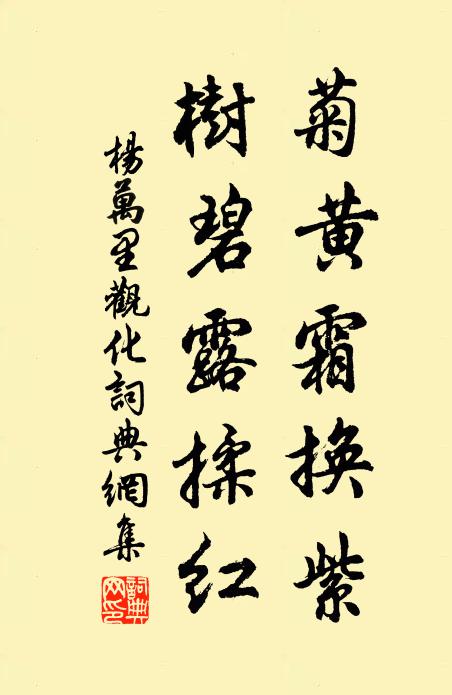 菊黄霜換紫
樹碧露揉紅
楊萬里觀化詞典網集
詞典網印